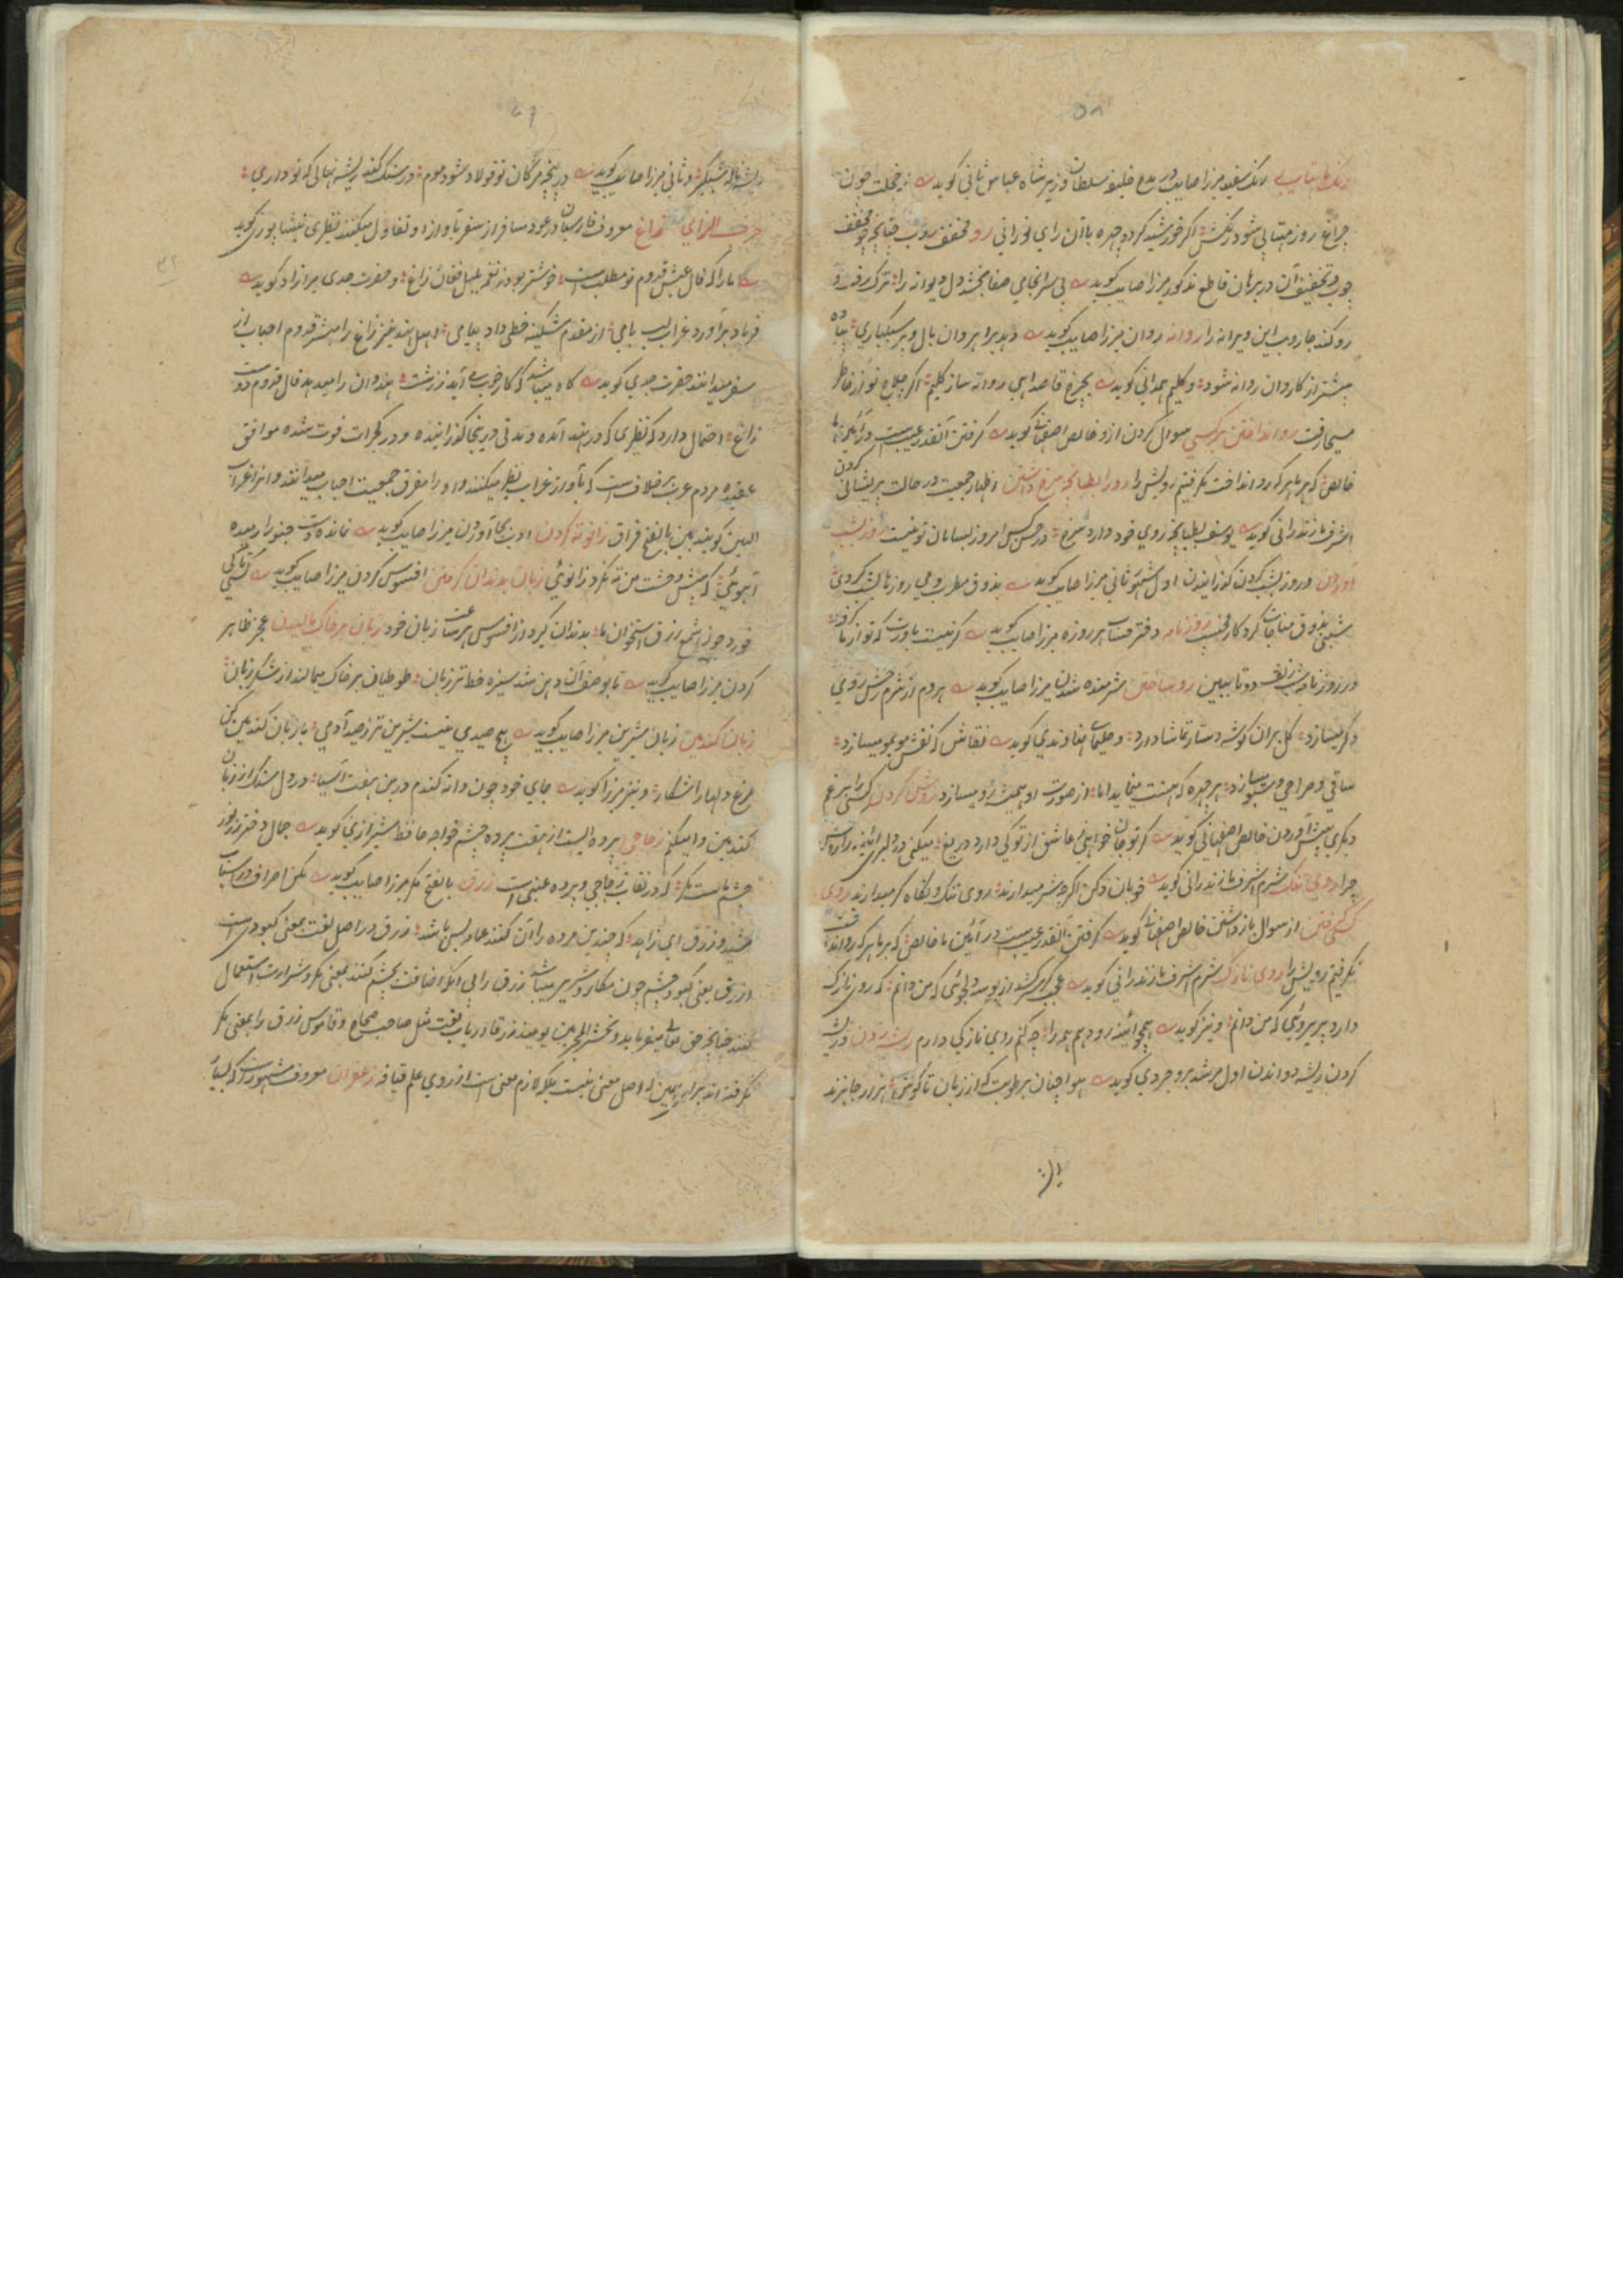 ۵۸
رنگ مهتابی رنگ سفید میرزا صایب در مدح خلیفه سلطان وزیر شاه عباس ثانی گوید ز خجلت چون
چراغ روز مهتابی شود رنگش اگر خورشید گردد چهره با آن رای نورانی رو مخفف روب چنانچه چو مخفف
چوب و تحقیق آن در برهان قاطع مذکور میرزا صایب گوید بی سرانجامی صفا بخشد دل دیوانه را ترک رفت و
رو کند جاروب این ویرانه را روانه روان میرزا صایب گوید دهد براهروان بال و پر سبکباری پیاده
پیشتر از کاروان روانه شود و کلیم همدانی گوید بچرخ قاصد آهی روانه ساز کلیم اگر علاج تو از خاطر
مسیحا رفت رو انداختن بر کسی سوال کردن ازو خالص اصفهانی گوید گرفتن آنقدر عیب است در آئین ما
خالص که بر ما هر که رو انداخت نگرفتیم رویش را رو را بطپانچه سرخ داشتن اظهار جمعیت در حالت پریشانی کردن
اشرف مازندرانی گوید یوسف بطپانچه روی خود دارد سرخ در حسن کس امروز بسامان تو نیست روز بشب
آوردن و روز بشب کردن گذراندن اول مشهور ثانی میرزا صایب گوید بذوق مطرب و می روزها بشب کردی
شبی بذوق مناجات کردگار مخسب روزنامه دفتر حساب هر روزه میرزا صایب گوید گر نیست باورت که تو از ما
در روزنامه شب زلف دوتا ببین رو ساختن شرمنده شدن میرزا صایب گوید هر دم از شرم رخش روی
دگر میسازد گل بر آن گوشه دستار تماشا دارد و حلیمای نهاوندی گوید نقاش که نقش مو بمو میسازد
ساقی و صراحی و سبو میسازد هر چهره که هست مینماید اما از صورت او همیشه رو میسازد روش کردن کسی را بر غم
دیگری پیش آوردن خالص اصفهانی گوید
چرا روی تنک شرم اشرف مازندرانی گوید خوبان دکن اگرچه شرم میدارند روی تنک و نگاه گرم میدارند روی
کسی گرفتن از سوال باز داشتن خالص اصفهانی گوید گرفتن آنقدر عیب است در آئین ما خالص که بر ما هر که رو انداخت
نگرفتیم رویش را روی نازک شرم اشرف مازندرانی گوید
دارد پریروئی که من دانم و نیز گوید همچو آئینه رو دهم همه را چه کنم روی نازکی دارم ریشه دواندن و ریشه
کردن ریشه دواندن اول مرشد بروجردی گوید هوا چنان برطوبت که از زبان تا گوش
ریشه ناله شبگیر و ثانی میرزا صایب گوید در پنجه مژگان تو فولاد شود موم در سنگ کند ریشه نهالی که تو داری
حرف الزای زاغ معروف فارسیان در عود مسافر از سفر بآواز او تفاؤل میکنند نظیری نیشاپوری گوید
ما را که فال عیش قدوم تو مطلب است خوشتر بود ز نغمه بلبل فغان زاغ و حضرت جدی میر آزاد گوید
فریاد برآورد غراب لب بامی از مقدم مشکینه خطی داد پیامی اهل هند نیز زاغ را مبشر قدوم احباب از
سفر میدانند حضرت جدی گوید گاه میباشد که کار خوب می آید ز زشت هندوان را میدهد فال قدوم دوست
زاغ احتمال دارد که نظیری که در هند آمده و مدتی درینجا گذرانیده و در گجرات فوت شده موافق
عقیده مردم عرب خلاف است که بآواز غراب تطیر میکنند و او را مفرق جمعیت احباب میدانند و آنرا غراب
البین گویند بین بالفتح فراق زانو ته کردن ادب بجا آوردن میرزا صایب گوید نمانده است جنون را رمیده
آهوئی که پیش وحشت من ته نکرد زانوئی زبان بدندان گرفتن افسوس کردن میرزا صایب گوید
خورد چون شمع رزق استخوان ما بدندان گیرد از افسوس هر ساعت زبان خود زبان بر خاک مالیدن عجز ظاهر
کردن میرزا صایب گوید تا بوصف آن دهن شد سبزه خط تر زبان طوطیان بر خاک میمالند از شکر زبان
زبان گندمین زبان شیرین میرزا صایب گوید هیچ صیدی نیست شیرین تر ز صید آدمی با زبان گندمین کن
مرغ دلها را شکار و نیز میرزا گوید جای خود چون دانه گندم درین هفت آسیا در دل سنگ از زبان
گندمین وا میکنم زجاجی پرده ایست از هفت پرده چشم خواجه حافظ شیرازی گوید جمال دختر رز نور
چشم ماست مگر که در نقاب زجاجی و پرده عنبی است زرق بالفتح مکر میرزا صایب گوید
ازرق یعنی کبود چشم چون مکار و شریر میباشد زرق را بی آنکه اضافت بچشم کنند بمعنی مکر و شرارت استعمال
کنند چنانچه حق تعالی میفرماید و نحشر المجرمین یومئذ زرقا ارباب لغت مثل صاحب صحاح و قاموس زرق را بمعنی مکر
نگرفته اند برای همین که اصل معنی نیست بلکه لازم معنی است از روی علم قیافه زعفران معروف مشهور است که بسیار